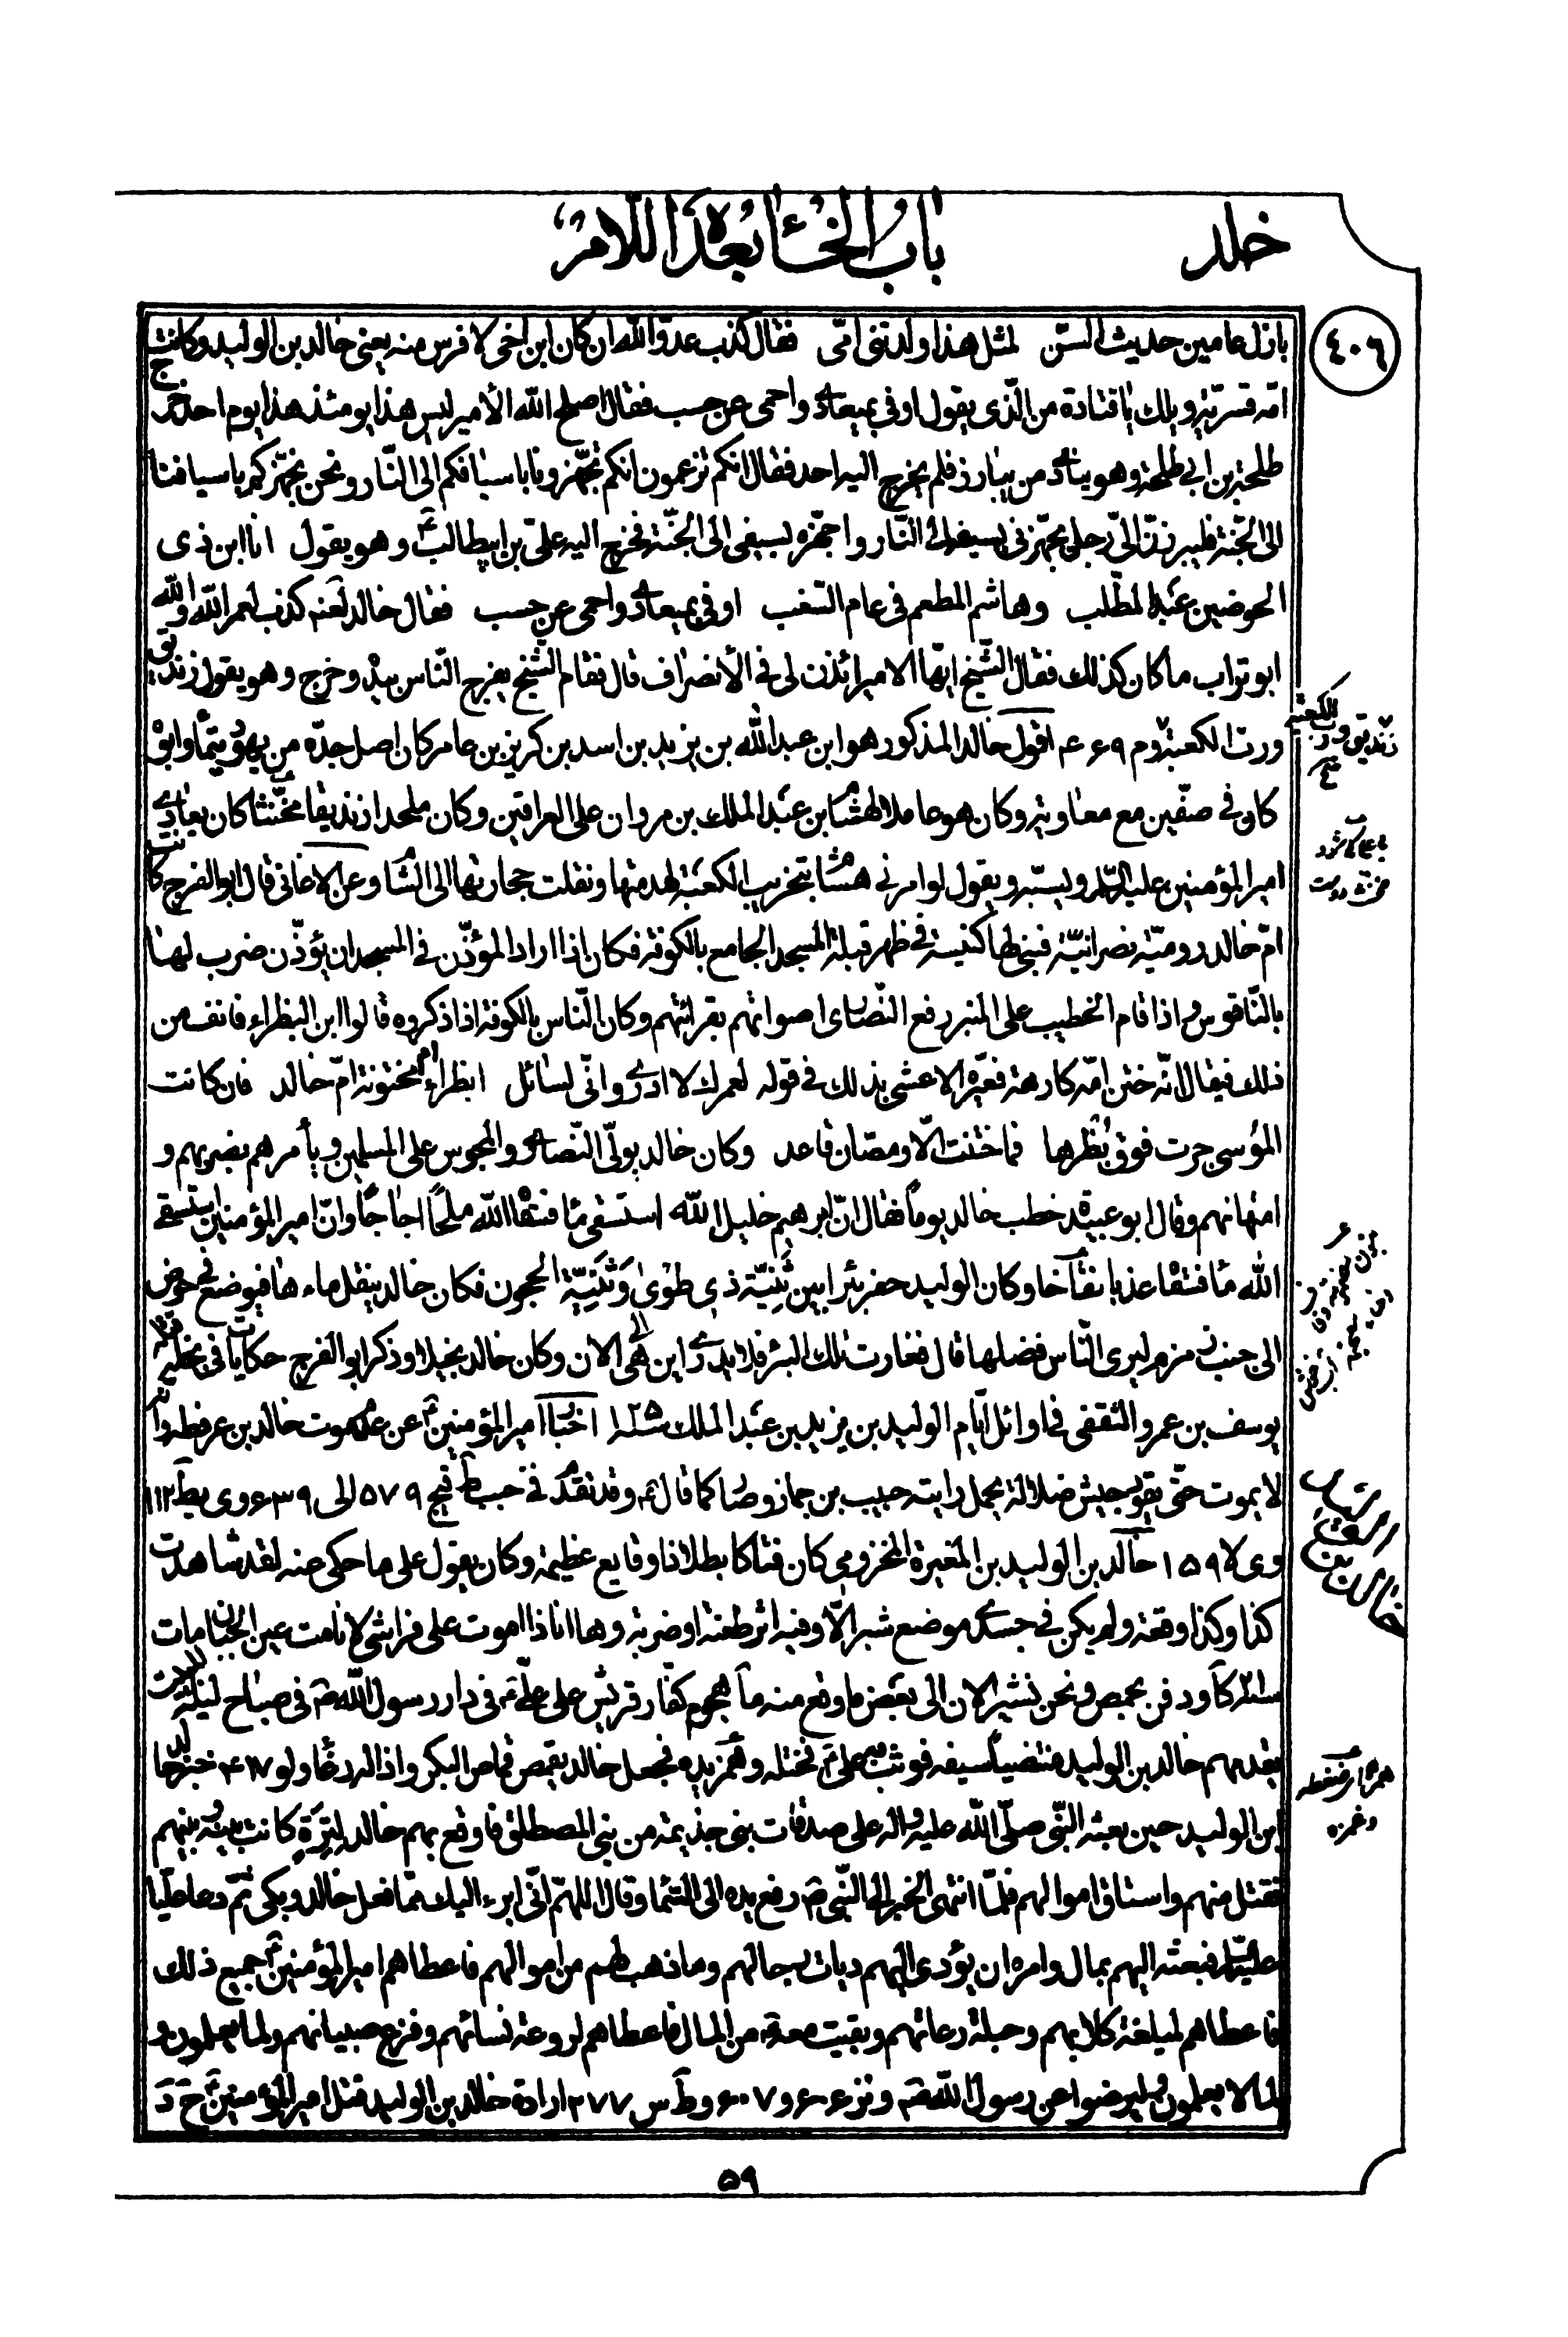 خلد
باب الخاء بعده اللام
٤٠٦
بازل عامين حديث السن لمثل هذا ولدتنى امّى فقال كذب عدوّ الله ان كان ابن اخى لافرس منه يعنى خالد بن الوليد وكانت
امّه قسريّة ويلك يا قتادة من الّذى يقول اوفى بميعادى واحمى عن حسب فقال اصلح الله الأمير ليس هذا يومئذ هذا يوم احد خرج
طلحة بن ابى طلحة وهو ينادى من يبارز فلم يخرج اليه احد فقال انكم تزعمون انكم تجهّزونا باسيافكم الى النّار ونحن نجهّزكم باسيافنا
الى الجنّة فليبرزنّ الىّ رجل يجهّزنى بسيفه الى النّار واجهّزه بسيفى الى الجنّة فخرج اليه علىّ بن ابيطالب ع وهو يقول انا ابن ذى
الحوضين عبد المطّلب وهاشم المطعم فى عام السّغب اوفى بميعادى واحمى عن حسب فقال خالد لعنه كذب لعمر الله والله
ابو تراب ما كان كذلك فقال الشّيخ ايّها الامير ائذن لى فى الأنصراف قال فقام الشّيخ يفرج النّاس بيده وخرج وهو يقول زنديق
وربّ الكعبة وم ٤٦٩ اقول خالد المذكور هو ابن عبد الله بن يزيد بن اسد بن كريز بن عامر كان اصل جدّه من يهود تيماء وابوه
كان فى صفّين مع معاوية وكان هو عاملا لهشام بن عبد الملك بن مروان على العراقين وكان ملحدا زنديقا مخنّثا كان يعادى
امير المؤمنين عليه السّلم ويسبّه ويقول لو امرنى هشام بتخريب الكعبة لهدمتها ونقلت حجارتها الى الشام وعن الاغانى قال ابو الفرج كانت
امّ خالد روميّة نصرانيّة فبنى لها كنيسة فى ظهر قبلة المسجد الجامع بالكوفة فكان اذا اراد المؤذّن فى المسجد ان يؤذّن ضرب لها
بالنّاقوس واذا قام الخطيب على المنبر رفع النّصارى اصواتهم بقرائتهم وكان النّاس بالكوفة اذا ذكروه قالوا ابن البظراء فانف من
ذلك فيقال انّه ختن امّه كارهة فعيّره الاعشى بذلك فى قوله لعمرك لا ادرى وانّى لسائل ابظراء ام مختونة امّ خالد فان كانت
المؤسى جرت فوق بُظرها فما ختنت الّا ومصّان قاعد وكان خالد يولّى النّصارى والمجوس على المسلمين ويأمرهم بضربهم و
امتهانهم وقال ابو عبيدة خطب خالد يوماً فقال انّ ابرهيم خليل الله استسقى ماء فسقاه الله ملحاً اجاجاً وانّ امير المؤمنين استسقى
الله ماء فسقاه عذبا نقاخا وكان الوليد حفر بئرا بين ثنيّة ذى طوى وثنيّة الحجون فكان خالد ينقل ماءها فيوضع فى حوض
الى جنب زمزم ليرى النّاس فضلها قال فغارت تلك البئر فلا يدرى اين هى الى الان وكان خالد بخيلا وذكر ابو الفرج حكايات فى بخله قتله
يوسف بن عمرو الثقفى فى اوائل ايّام الوليد بن يزيد بن عبد الملك سنة ١٢٥ اخبار امير المؤمنين ع عن عدم موت خالد بن عرفطة وانّه
لا يموت حتّى يقود جيش ضلالة يحمل رايته حبيب بن جماز وصار كما قال ع وقد تقدّم فى حبب ط قيج ٥٧٩ الى ٦٣٩ وى يط ١١٢
وى لا ١٥٩ خالد بن الوليد بن المغيرة المخزومى كان فتّاكا بطلا ذا وقايع عظيمة وكان يقول على ما حكى عنه لقد شاهدت
كذا وكذا وقعة ولم يكن فى جسدى موضع شبر الّا وفيه اثر طعنة او ضربة وها انا ذا اموت على فراشى لا نامت عين الجبان مات
سنة كا ودفن بحمص ونحن نشير الان الى بعض ما وقع منه ما هجوم كفّار قريش على علىّ ع فى دار رسول الله ص فى صباح ليلة المبيت
يقدمهم خالد بن الوليد منتضيا سيفه فوثب به علىّ ع فختله وهمز يده فجعل خالد يقمص قماص البكر واذا له رغاء ولو ٤١٧ خبر خالد
ابن الوليد حين بعثه النّبى صلّى الله عليه واله على صدقات بنى جذيمة من بنى المصطلق فاوقع بهم خالد لترة كانت بينه وبينهم
فقتل منهم واستاق اموالهم فلمّا انتهى الخبر الى النّبى ص رفع يده الى السّماء وقال اللهمّ انّى ابرء اليك ممّا فعل خالد وبكى ثمّ دعا عليّا
عليه السّلم فبعثه اليهم بمال وامره ان يؤدى اليهم ديات رجالهم وما ذهب لهم من اموالهم فاعطاهم امير المؤمنين ع جميع ذلك
فاعطاهم لميلغة كلابهم وحبلة رعاتهم وبقيت معه من المال فاعطاهم لروعة نسائهم وفزع صبيانهم ولما يعلمون و
لما لا يعلمون وليرضوا عن رسول الله ص ونز ٦٠٦ و٦٠٧ وط س ٢٧٧ ارادة خالد بن الوليد قتل امير المؤمنين ع ح د
زنديق وربّ الكعبة
همز فشار ضغطه
وغمزه
٥٩